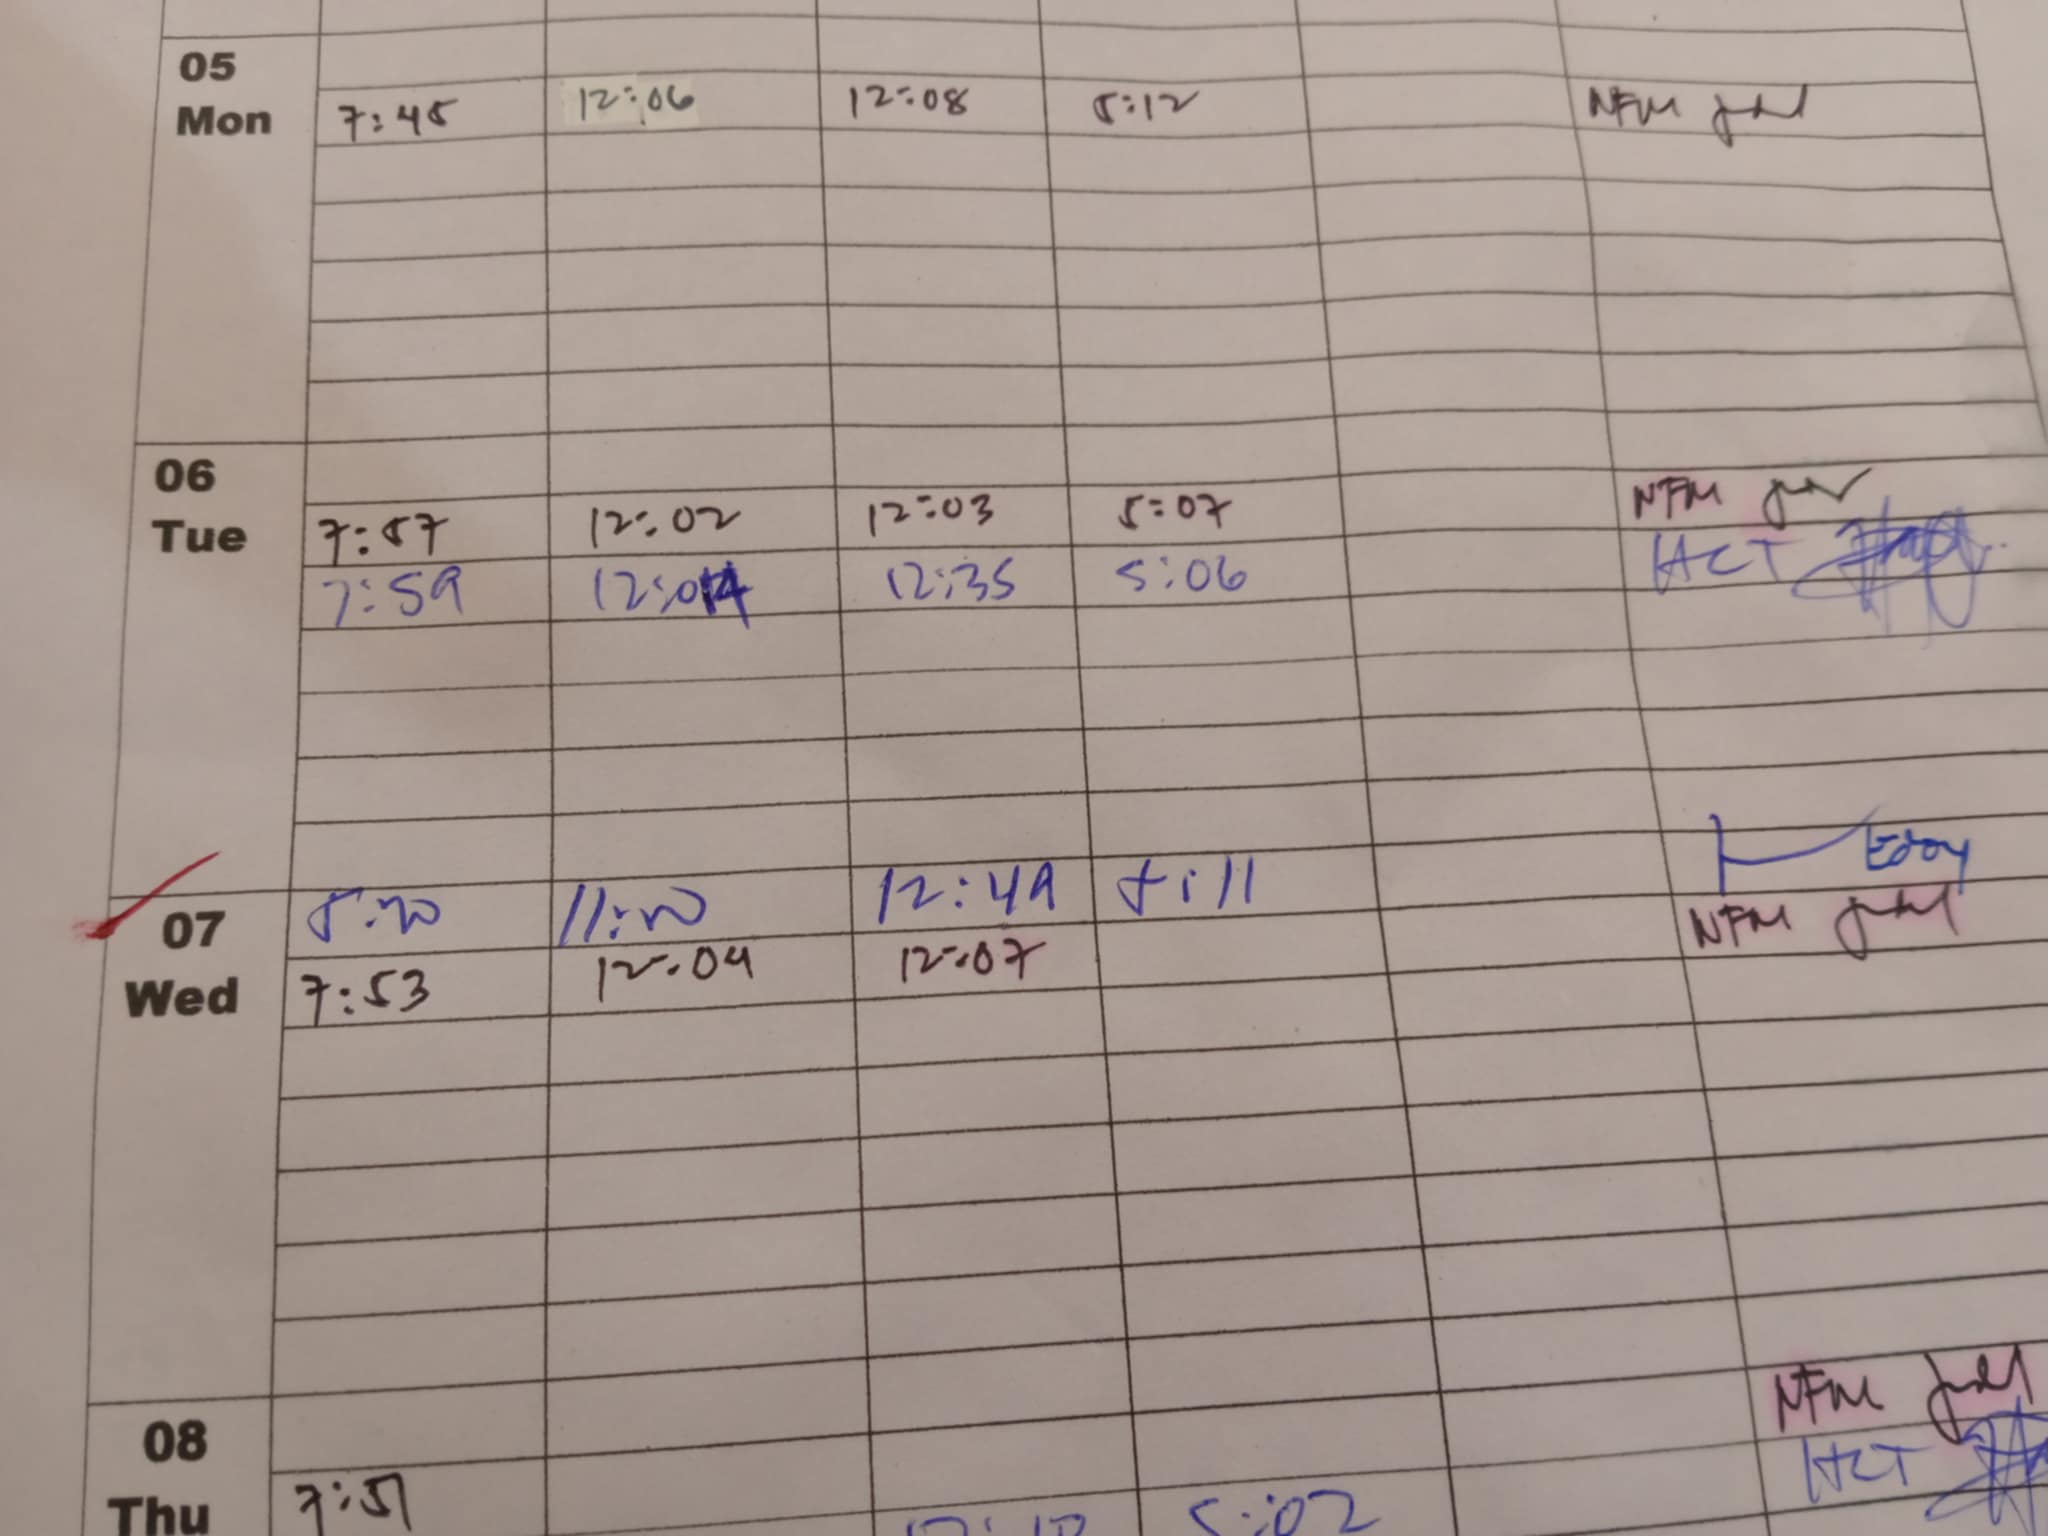 05
Mon 7:45 12:06 12:08 5:12 NFM
06
Tue 7:57 12:02 12:03 5:07 NFM
7:59 12:04 12:35 5:06 HCT
07 12:49 Edoy
Wed 7:53 12:04 12:07 NFM
08 NFM
Thu 7:51 5:02 HCT